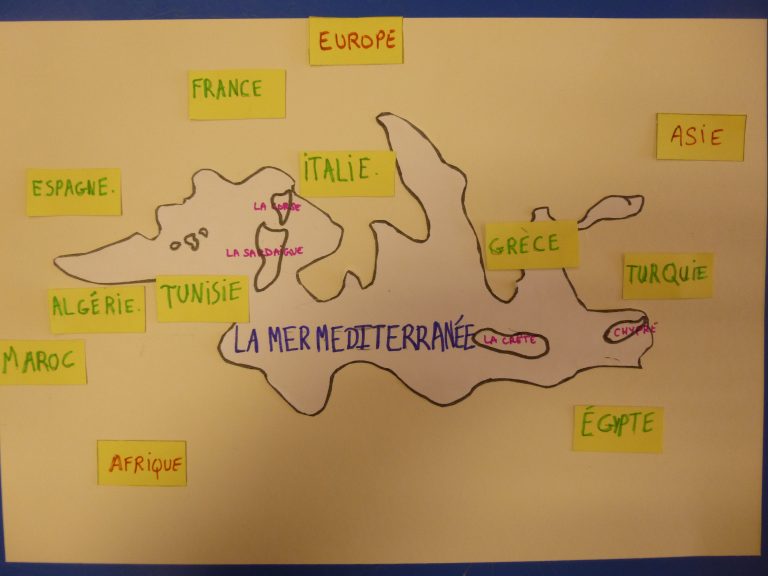 EUROPE
FRANCE
ASIE
ITALIE.
ESPAGNE.
LA CORSE
LA SARDAIGNE
GRÈCE
TURQUIE
TUNISIE
ALGÉRIE.
CHYPRE
LA MER MEDITERRANÉE
LA CRÈTE
MAROC
ÉGYPTE
AFRIQUE